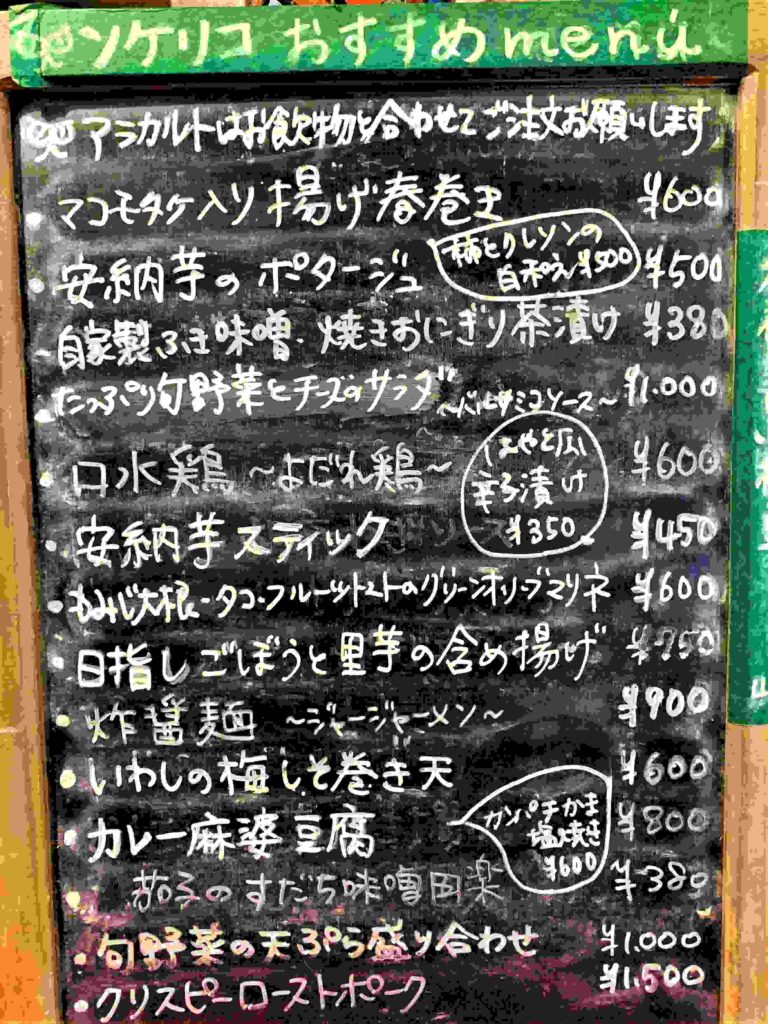 ソケリコ おすすめ menú
アラカルトはお飲物と合わせてご注文お願いします
・マコモタケ入り揚げ春巻き ¥600
柿とクレソンの
白和え ¥500
・安納芋のポタージュ ¥500
・自家製ふき味噌・焼きおにぎり茶漬け ¥380
・たっぷり旬野菜とチーズのサラダ ~バルサミコソース~ ¥1.000
はやと瓜
辛子漬け
¥350
・口水鶏 ~よだれ鶏~ ¥600
・安納芋スティック ¥450
・もみじ大根-タコ・フルーツトマトのグリーンオリーブマリネ ¥600
・目指しごぼうと里芋の含め揚げ ¥750
・炸醤麺 ~ジャージャーメン~ ¥900
・いわしの梅しそ巻き天 ¥600
カンパチかま
塩焼き
¥600
・カレー麻婆豆腐 ¥800
茄子のすだち味噌田楽 ¥380
・旬野菜の天ぷら盛り合わせ ¥1.000
・クリスピーローストポーク ¥1.500